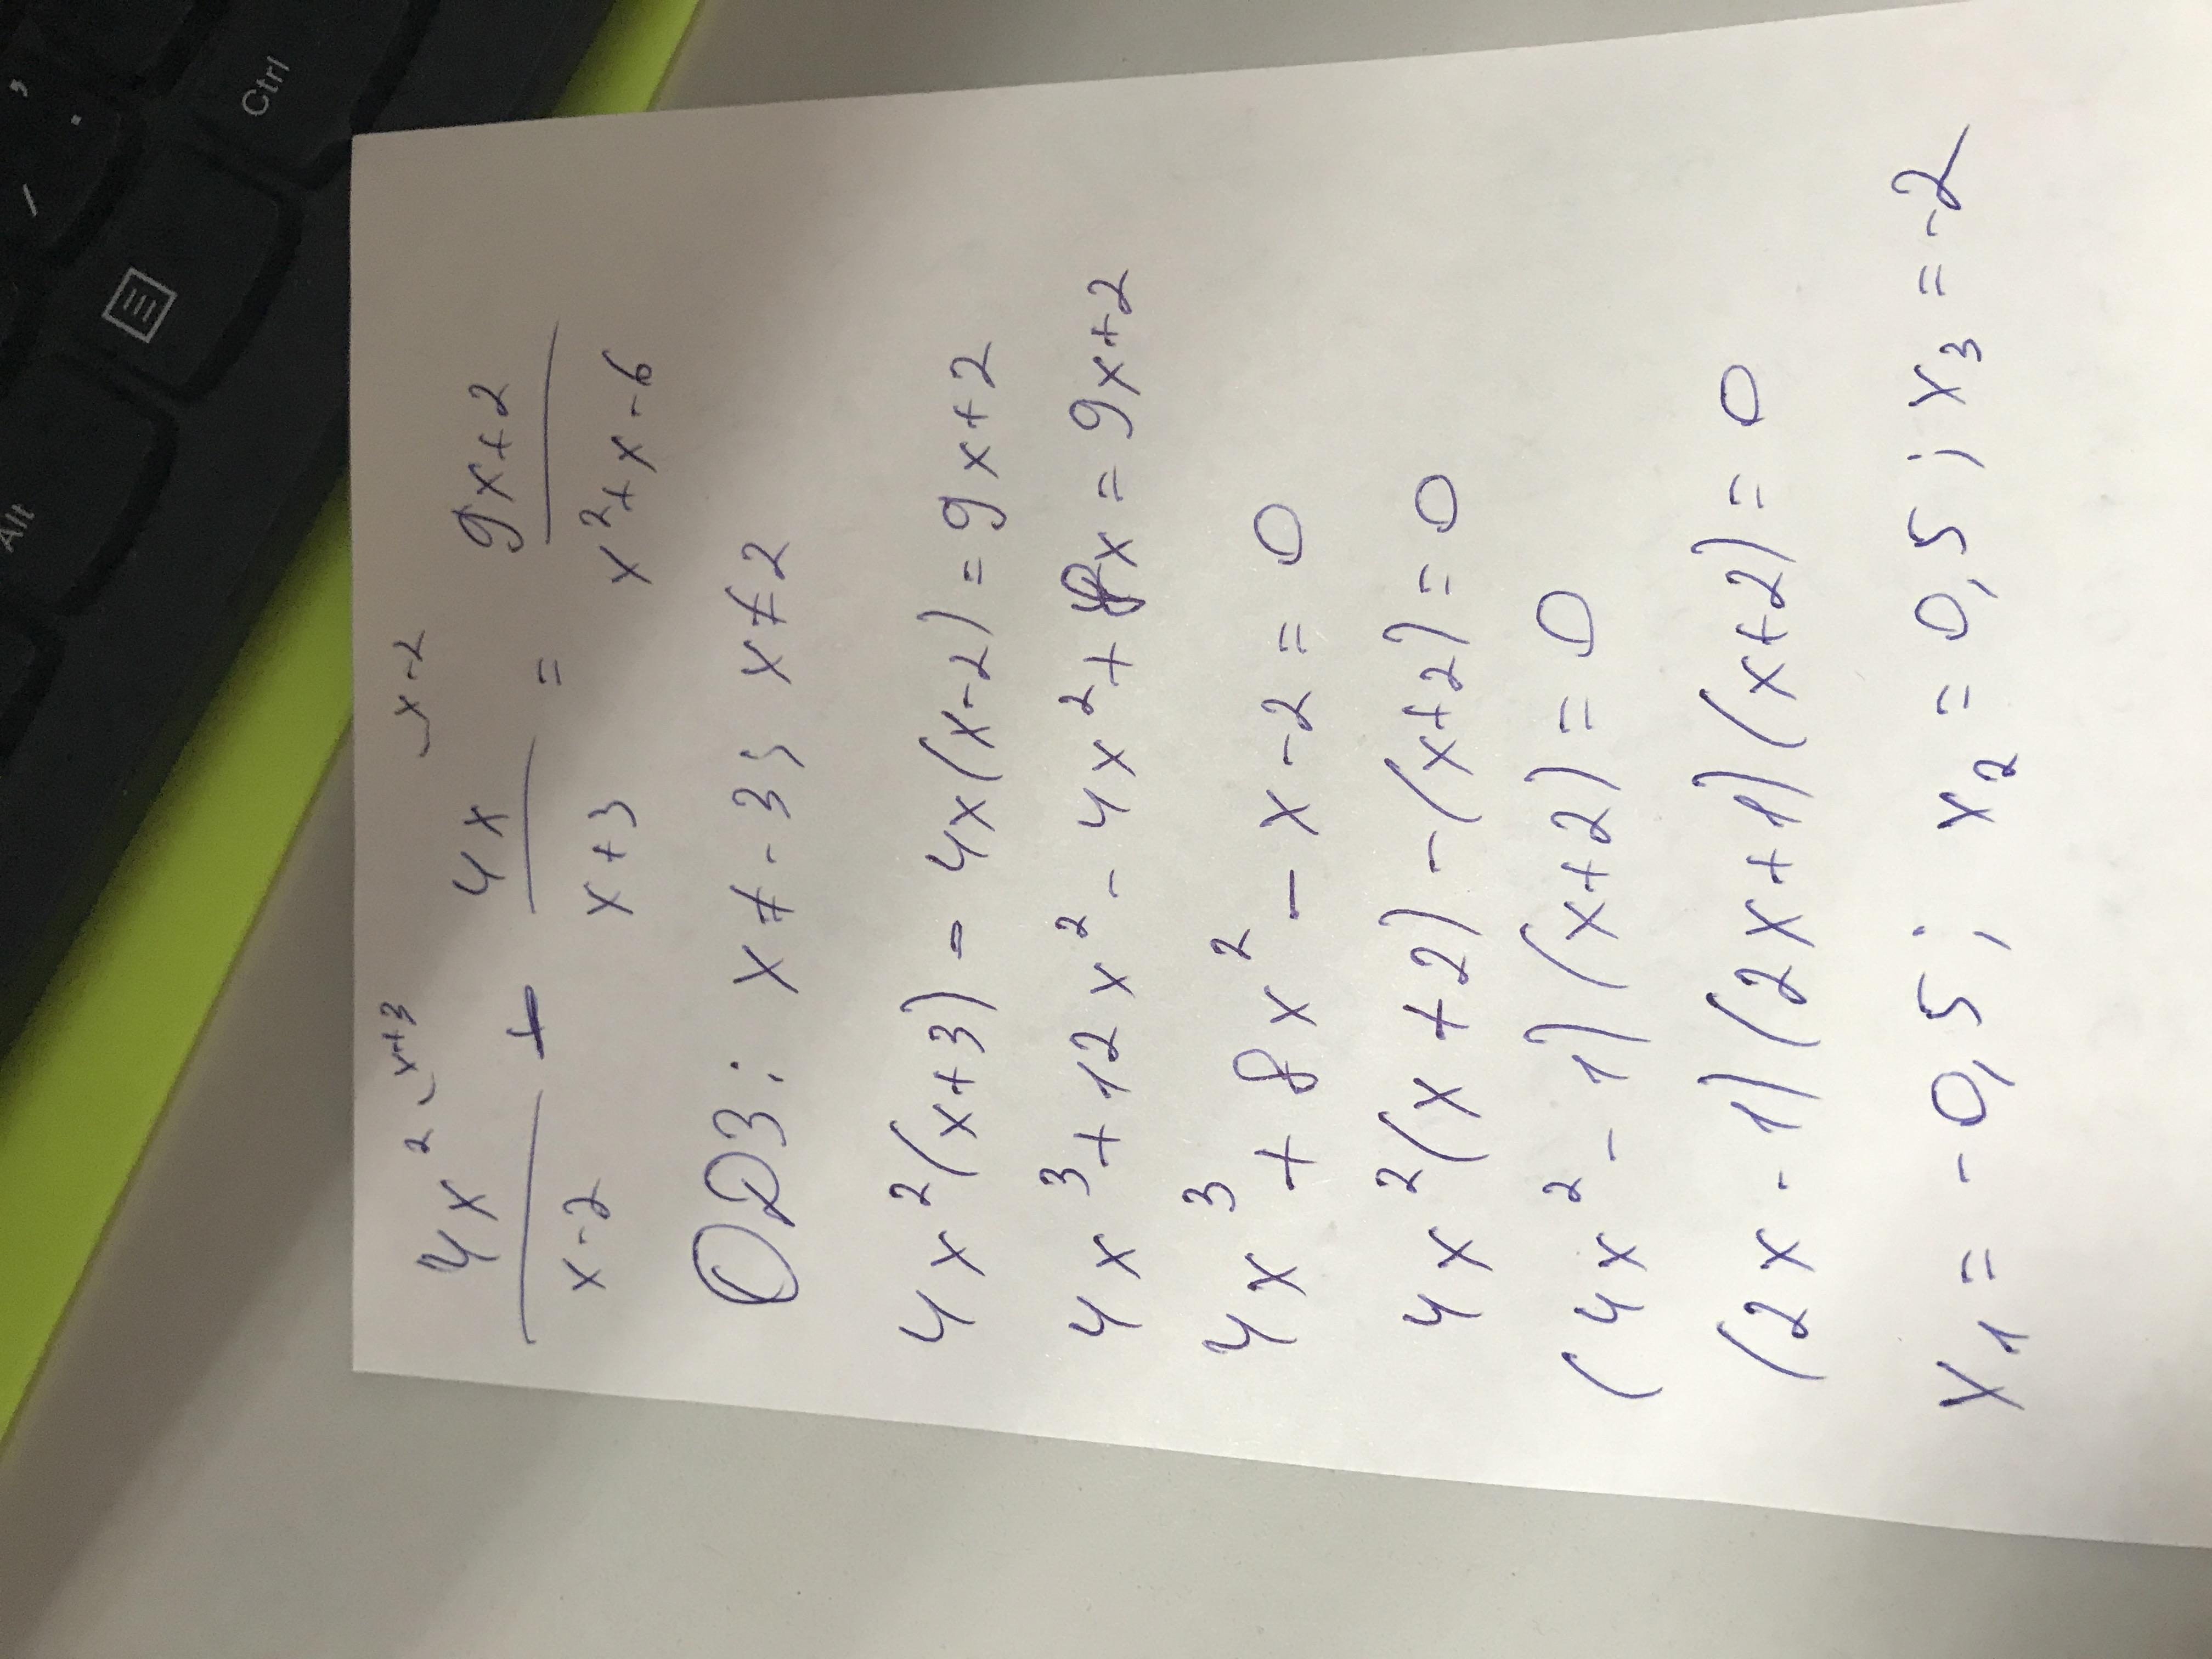 Alt
Ctrl
4x²/(x-2) - 4x/(x+3) = (9x+2)/(x²+x-6)
x+3
x-2
ОДЗ: x ≠ -3; x ≠ 2
4x²(x+3) - 4x(x-2) = 9x+2
4x³ + 12x² - 4x² + 8x = 9x+2
4x³ + 8x² - x - 2 = 0
4x²(x+2) - (x+2) = 0
(4x² - 1)(x+2) = 0
(2x - 1)(2x+1)(x+2) = 0
x₁ = -0,5; x₂ = 0,5; x₃ = -2